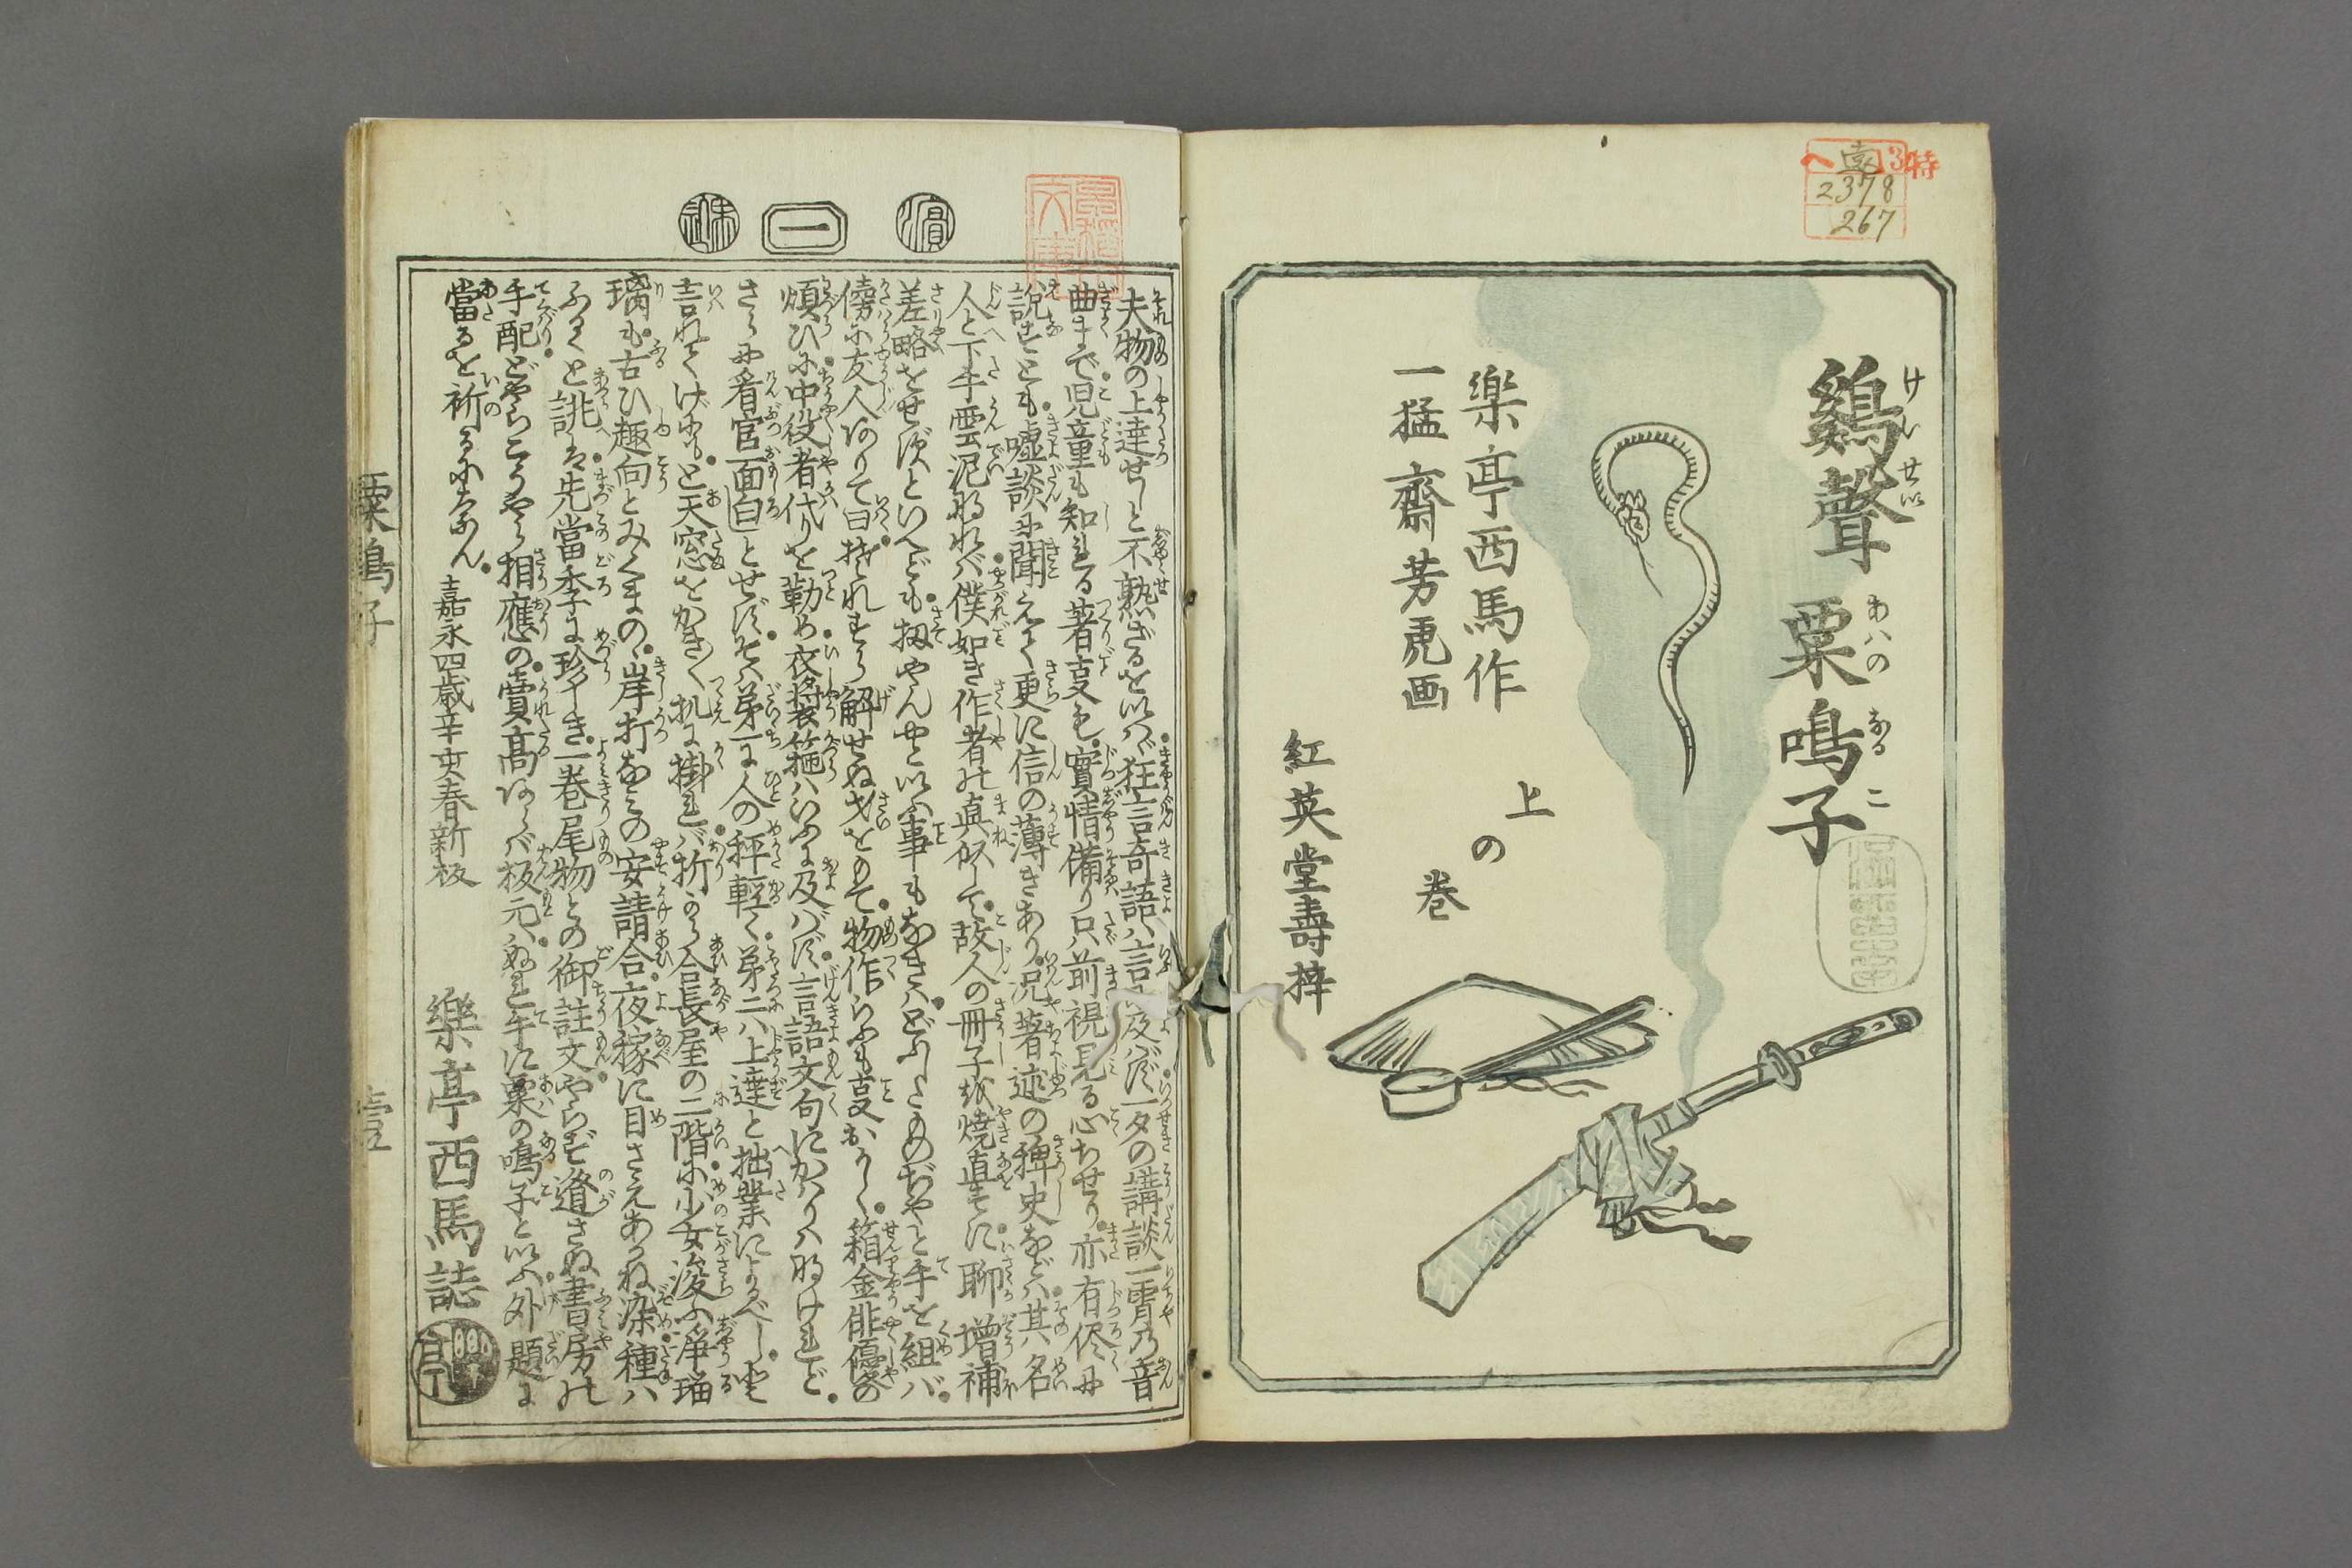 特
13
2378
267
鷄聲粟鳴子
けいせいあはのなるこ
樂亭西馬作
一猛齋芳虎画
上の巻
紅英堂壽梓
濵
一
夫物の上達せしと不熟ざるを以へば狂言奇語ハ言に及バず一夕の講談一霄乃音
曲まで児童も知れる著叓も實情備り只前視見る心ちせり亦有侭に
説せども嘘談に聞えて更に信の薄きあり况著述の稗史などハ其名
人と下手雲泥なれバ僕如き作者の真似して故人の冊子を焼直さずに聊増補
差略をせずといへども扨やんやと以ふ事もなきハどふしたものぢやと手を組バ
傍に友人ありて曰
物作らふも叓おかし箱金俳優の
煩ひに中役者代りを勤め衣裳葹ハいふに及バず言語文句にかハりハなけれど
さらに看官面白しとせずそハ第一に人の秤輕く第二ハ上達と拙業によるべし
言れてげにもと天窓をかきく机に掛れバ折から合長屋の二階に少女浚ふ浄瑠
璃も古ひ趣向とみくまの岸打なみの安請合夜稼に目さえあかね染種ハ
ふるくと誂は先當季に珍しき一巻尾物との御註文やらずど遁さぬ書房の
手配どやらこうやら相應の賣髙あらバ板元ハぬれ手に粟の鳴子と以ふ外題に
當るを祈るになん
嘉永四歳辛亥春新板
樂亭西馬誌
亭
粟鳴子
壹